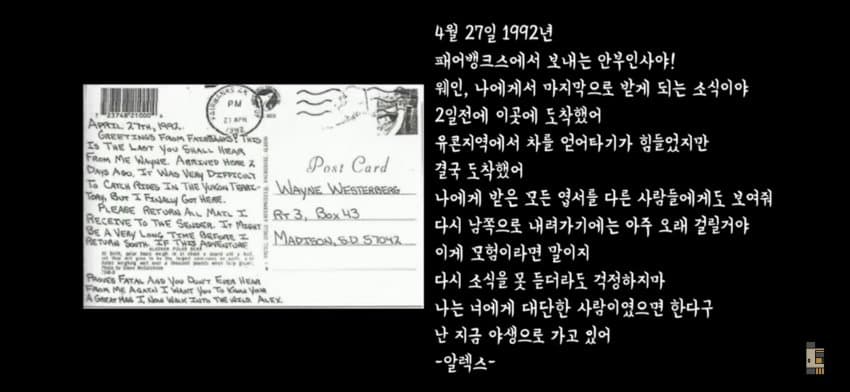 7 23748 21000 4
FAIRBANKS AK
PM
APR
1992
APRIL 27TH, 1992.
GREETINGS FROM FAIRBANKS! THIS
IS THE LAST YOU SHALL HEAR
FROM ME WAYNE. ARRIVED HERE 2
DAYS AGO. IT WAS VERY DIFFICULT
TO CATCH RIDES IN THE YUKON TERRI-
TORY, BUT I FINALLY GOT HERE.
PLEASE RETURN ALL MAIL I
RECEIVE TO THE SENDER. IT MIGHT
BE A VERY LONG TIME BEFORE I
RETURN SOUTH. IF THIS ADVENTURE
ALASKAN POLAR BEAR
PROVES FATAL AND YOU DON'T EVER HEAR
FROM ME AGAIN I WANT YOU TO KNOW YOUR
A GREAT MAN. I NOW WALK INTO THE WILD. ALEX.
Post Card
WAYNE WESTERBERG
RT 3, BOX 43
MADISON, S.D 57042
4월 27일 1992년
패어뱅크스에서 보내는 안부인사야!
웨인, 나에게서 마지막으로 받게 되는 소식이야
2일전에 이곳에 도착했어
유콘지역에서 차를 얻어타기가 힘들었지만
결국 도착했어
나에게 받은 모든 엽서를 다른 사람들에게도 보여줘
다시 남쪽으로 내려가기에는 아주 오래 걸릴거야
이게 모험이라면 말이지
다시 소식을 못 듣더라도 걱정하지마
나는 너에게 대단한 사람이였으면 한다구
난 지금 야생으로 가고 있어
-알렉스-